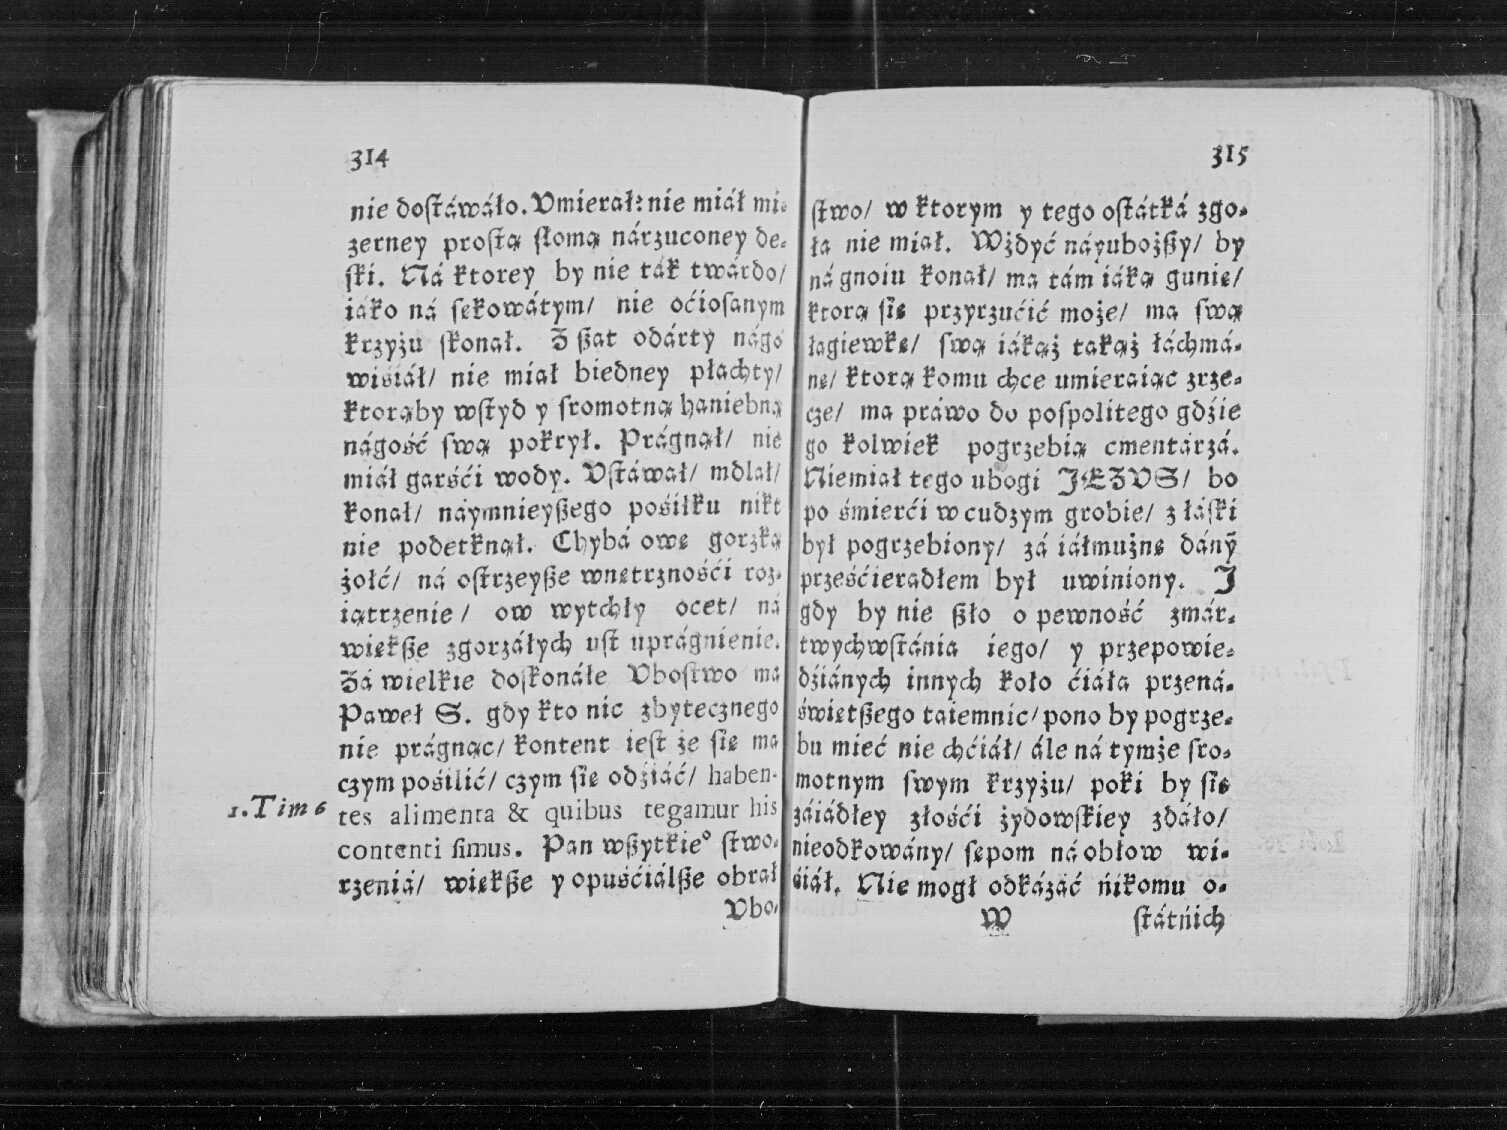 314
nie dostáwáło. Vmierał: nie miáł mi-
zerney prostą słomą nárzuconey de-
ski. Ná ktorey by nie ták twárdo/
iáko ná sękowátym/ nie oćiosanym
krzyżu skonał. Z ßat odárty nágo
wiśiáł/ nie miał biedney płachty/
ktorąby wstyd y sromotną haniebną
nágość swą pokrył. Prágnął/ nie
miáł garśći wody. Vstáwał/ mdlał/
konał/ náymnieyßego pośiłku nikt
nie podetknął. Chybá owę gorzką
żołć/ ná ostrzeyße wnętrznośći roz-
iątrzenie/ ow wytchły ocet/ ná
więkße zgorzáłych ust uprágnienie.
Zá wielkie doskonáłe Vbostwo ma
Paweł S. gdy kto nic zbytecznego
nie prágnąc/ kontent iest że się ma
czym pośilić/ czym się odźiáć/ haben-
1. Tim 6
tes alimenta & quibus tegamur his
contenti simus. Pan wßytkie° stwo-
rzeniá/ więkße y opuśćiálße obrał
Vbo-
315
stwo/ w ktorym y tego ostátká zgo-
ła nie miał. Wżdyć náyubożßy/ by
ná gnoiu konał/ ma tám iáką gunię/
ktorą się przyrzućić może/ ma swą
łagiewkę/ swą iákąż takąż łáchmá-
nę/ ktorą komu chce umieraiąc zrze-
cze/ ma práwo do pospolitego gdźie
go kolwiek pogrzebią cmentarzá.
Niemiał tego ubogi JEZVS/ bo
po śmierći w cudzym grobie/ z łáski
był pogrzebiony/ zá iáłmużnę dáný
prześćieradłem był uwiniony. J
gdy by nie ßło o pewność zmár-
twychwstánia iego/ y przepowie-
dźiánych innych koło ćiáła przená-
świętßego taiemnic/ pono by pogrze-
bu mieć nie chćiáł/ ále ná tymże sro-
motnym swym krzyżu/ poki by się
záiádłey złośći żydowskiey zdáło/
nieodkowány/ sępom ná obłow wi-
śiáł. Nie mogł odkázáć ńikomu o-
W státńich